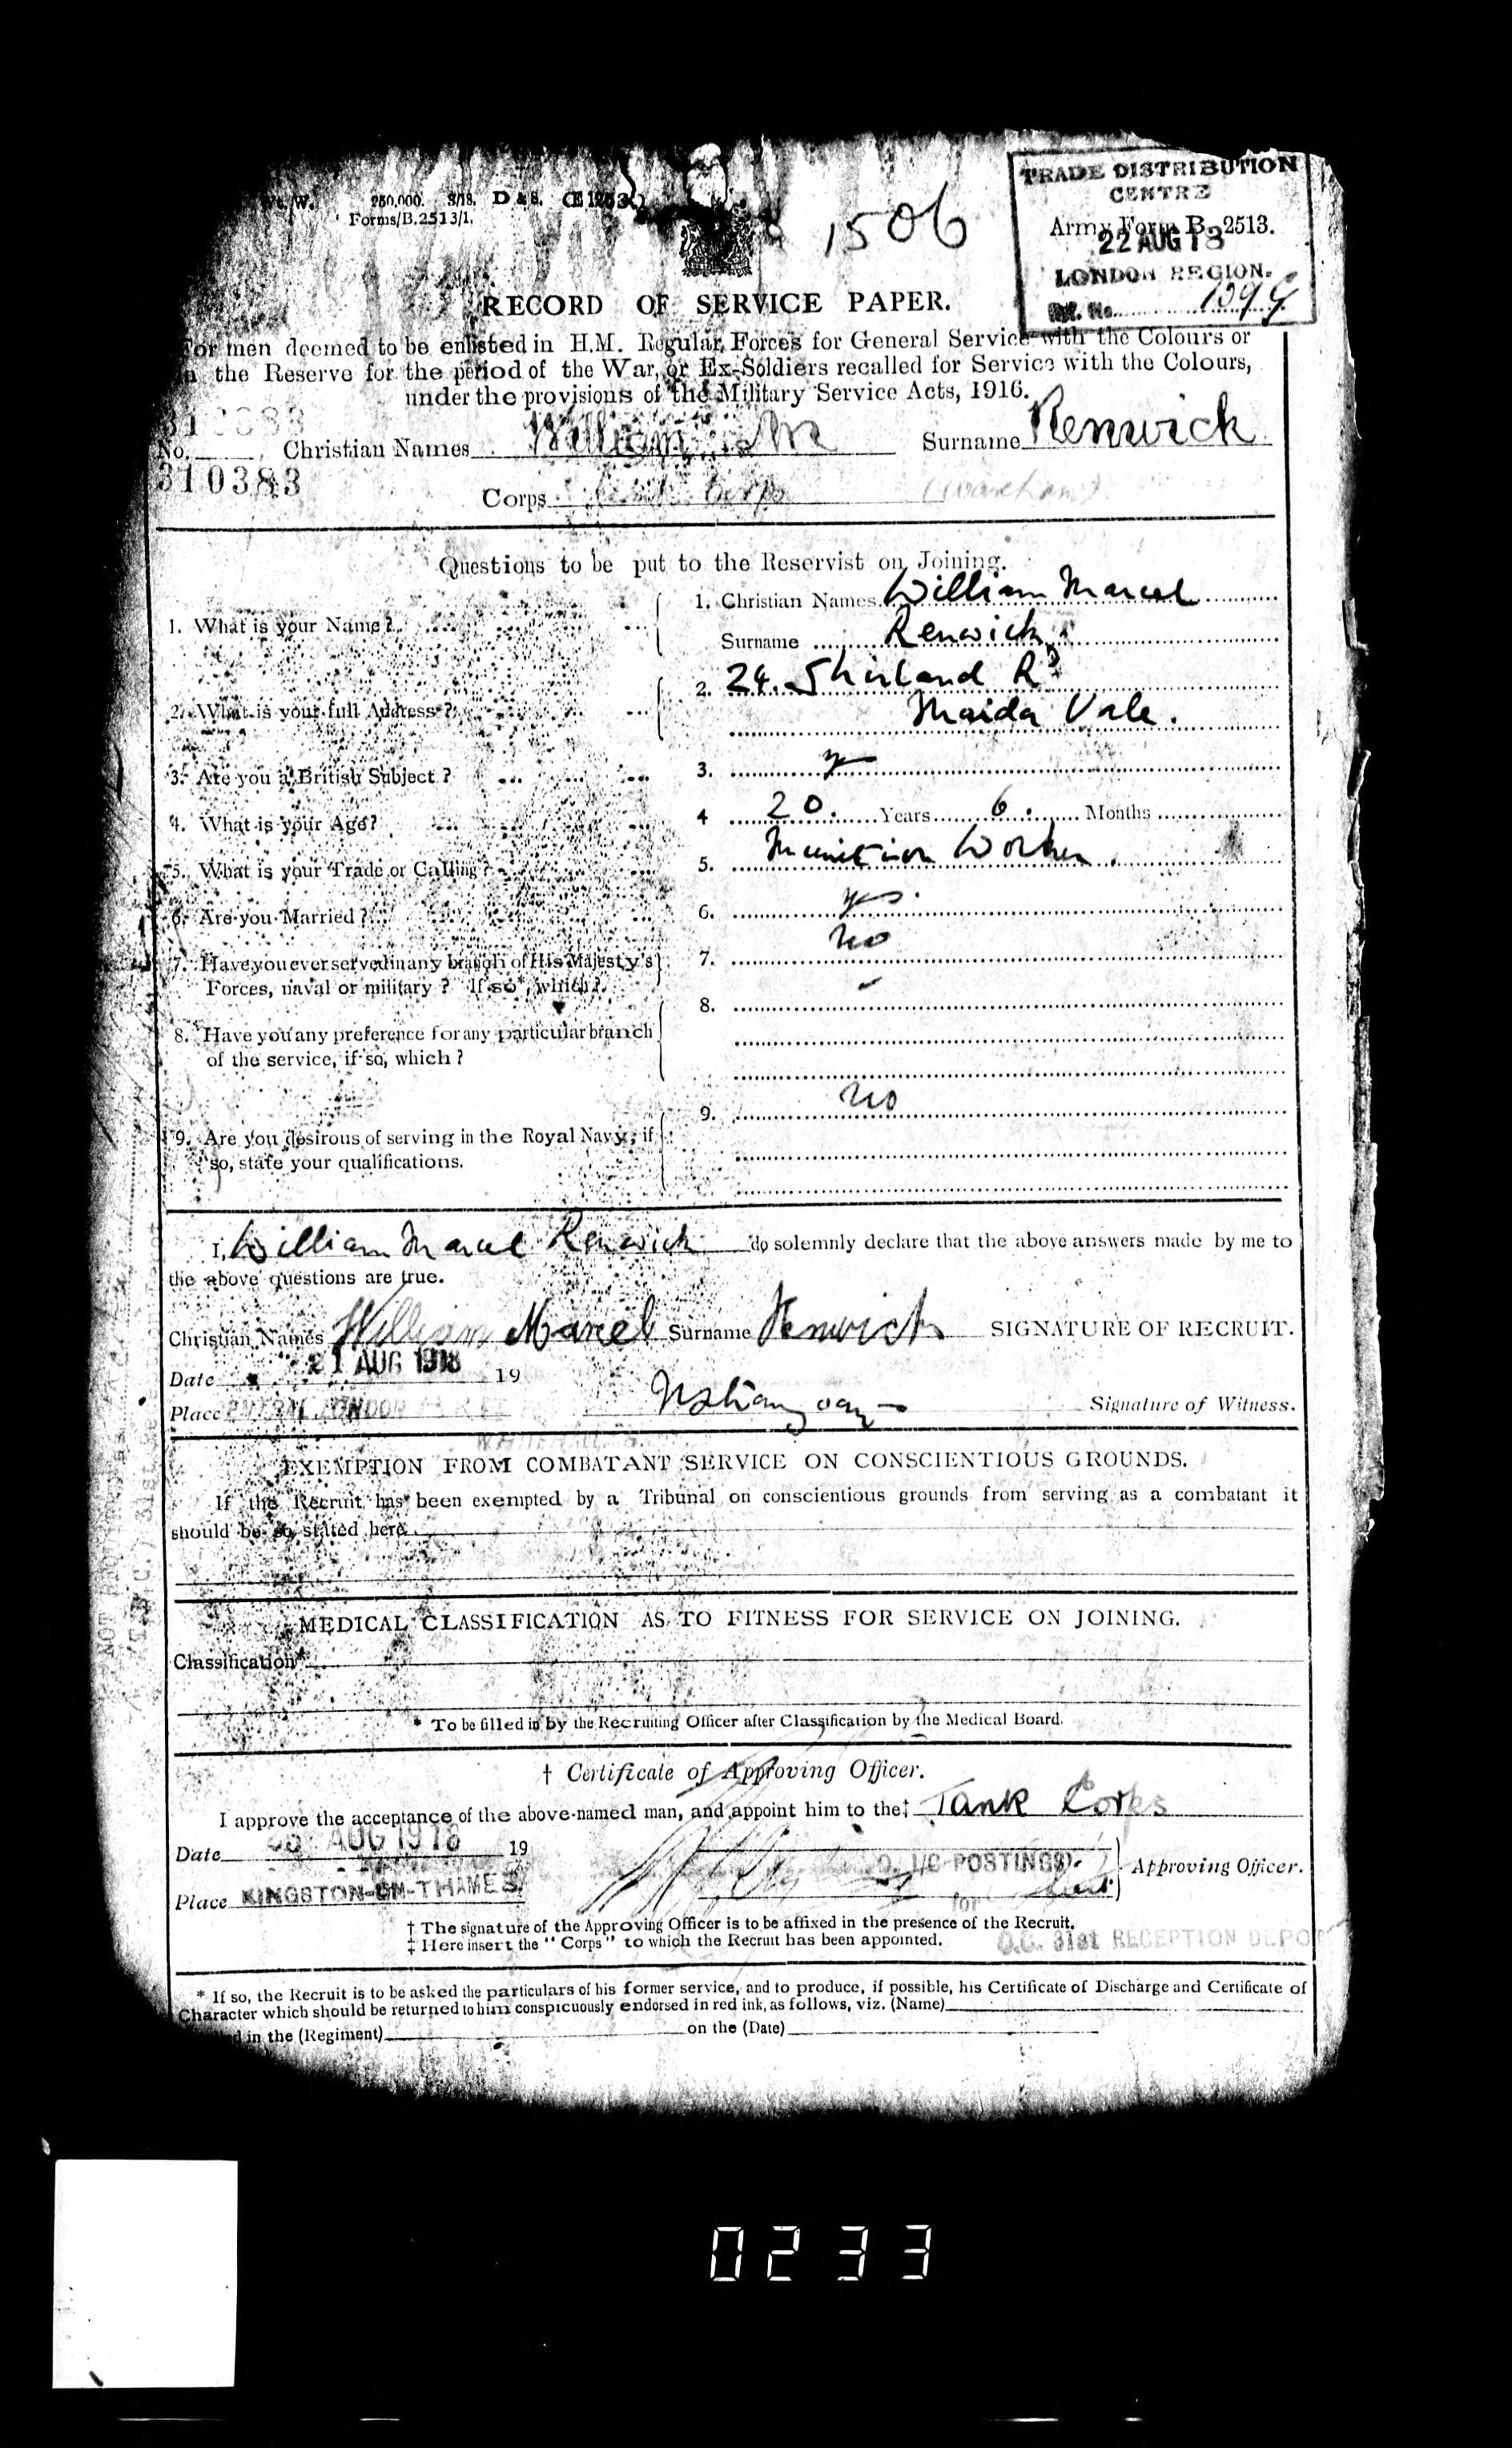 250,000. 3/18. D & S.
Forms/B.2513/1.
1506
TRADE DISTRIBUTION
CENTRE
Army Form B. 2513.
22 AUG 18
LONDON REGION.
RECORD OF SERVICE PAPER.
For men deemed to be enlisted in H.M. Regular Forces for General Service with the Colours or
the Reserve for the period of the War, or Ex-Soldiers recalled for Service with the Colours,
under the provisions of the Military Service Acts, 1916.
310383
No. Christian Names William Surname Renwick
310383
Corps Corps (Wareham)
Questions to be put to the Reservist on Joining.
1. What is your Name? 1. Christian Names William Marcel
Surname Renwick
2. What is your full Address? 2. 24. Shirland Rd
Maida Vale.
3. Are you a British Subject? 3. y
4. What is your Age? 4 20. Years 6. Months
5. What is your Trade or Calling? 5. Munition Worker.
6. Are you Married? 6. yes.
7. Have you ever served in any branch of His Majesty's 7. no
Forces, naval or military? If so*, which?
8. Have you any preference for any particular branch 8. -
of the service, if so, which?
9. Are you desirous of serving in the Royal Navy, if 9. no
so, state your qualifications.
I, William Marcel Renwick do solemnly declare that the above answers made by me to
the above questions are true.
Christian Names William Marcel Surname Renwick SIGNATURE OF RECRUIT.
Date 21 AUG 1918 19
Place LONDON Signature of Witness.
EXEMPTION FROM COMBATANT SERVICE ON CONSCIENTIOUS GROUNDS.
If the Recruit has been exempted by a Tribunal on conscientious grounds from serving as a combatant it
should be so stated here
MEDICAL CLASSIFICATION AS TO FITNESS FOR SERVICE ON JOINING.
Classification*
* To be filled in by the Recruiting Officer after Classification by the Medical Board.
† Certificate of Approving Officer.
I approve the acceptance of the above-named man, and appoint him to the‡ Tank Corps
Date AUG 1918 19
O. I/C POSTINGS). Approving Officer.
Place KINGSTON-ON-THAMES
for
† The signature of the Approving Officer is to be affixed in the presence of the Recruit.
‡ Here insert the "Corps" to which the Recruit has been appointed.
O.C. 31st RECEPTION DEPO
* If so, the Recruit is to be asked the particulars of his former service, and to produce, if possible, his Certificate of Discharge and Certificate of
Character which should be returned to him conspicuously endorsed in red ink, as follows, viz. (Name)
in the (Regiment) on the (Date)
0233